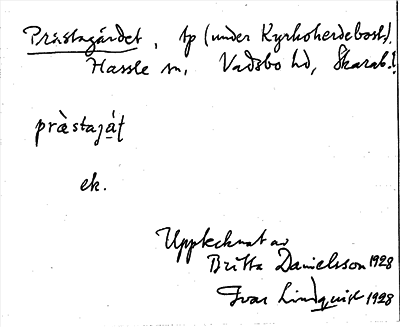 Prästagärdet, tp (under Kyrkoherdebost.),
Hassle sn, Vadsbo hd, Skarab. l.
præ̀stajáʈ
ek.
Upptecknat av
Britta Danielsson 1928
Ivar Lindquist 1928